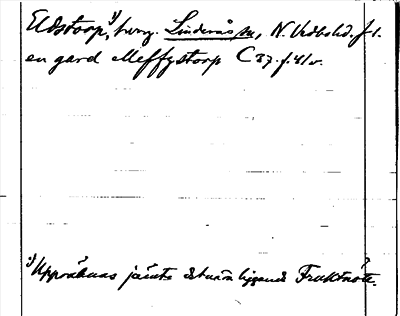 Eldstorp,¹) herg. Linderås sn, N. Vedbohd. f 1.
en gard Meffystorp C 37. f. 41 v.
¹) Uppräknas jämte det nära liggande Fruktnöte.